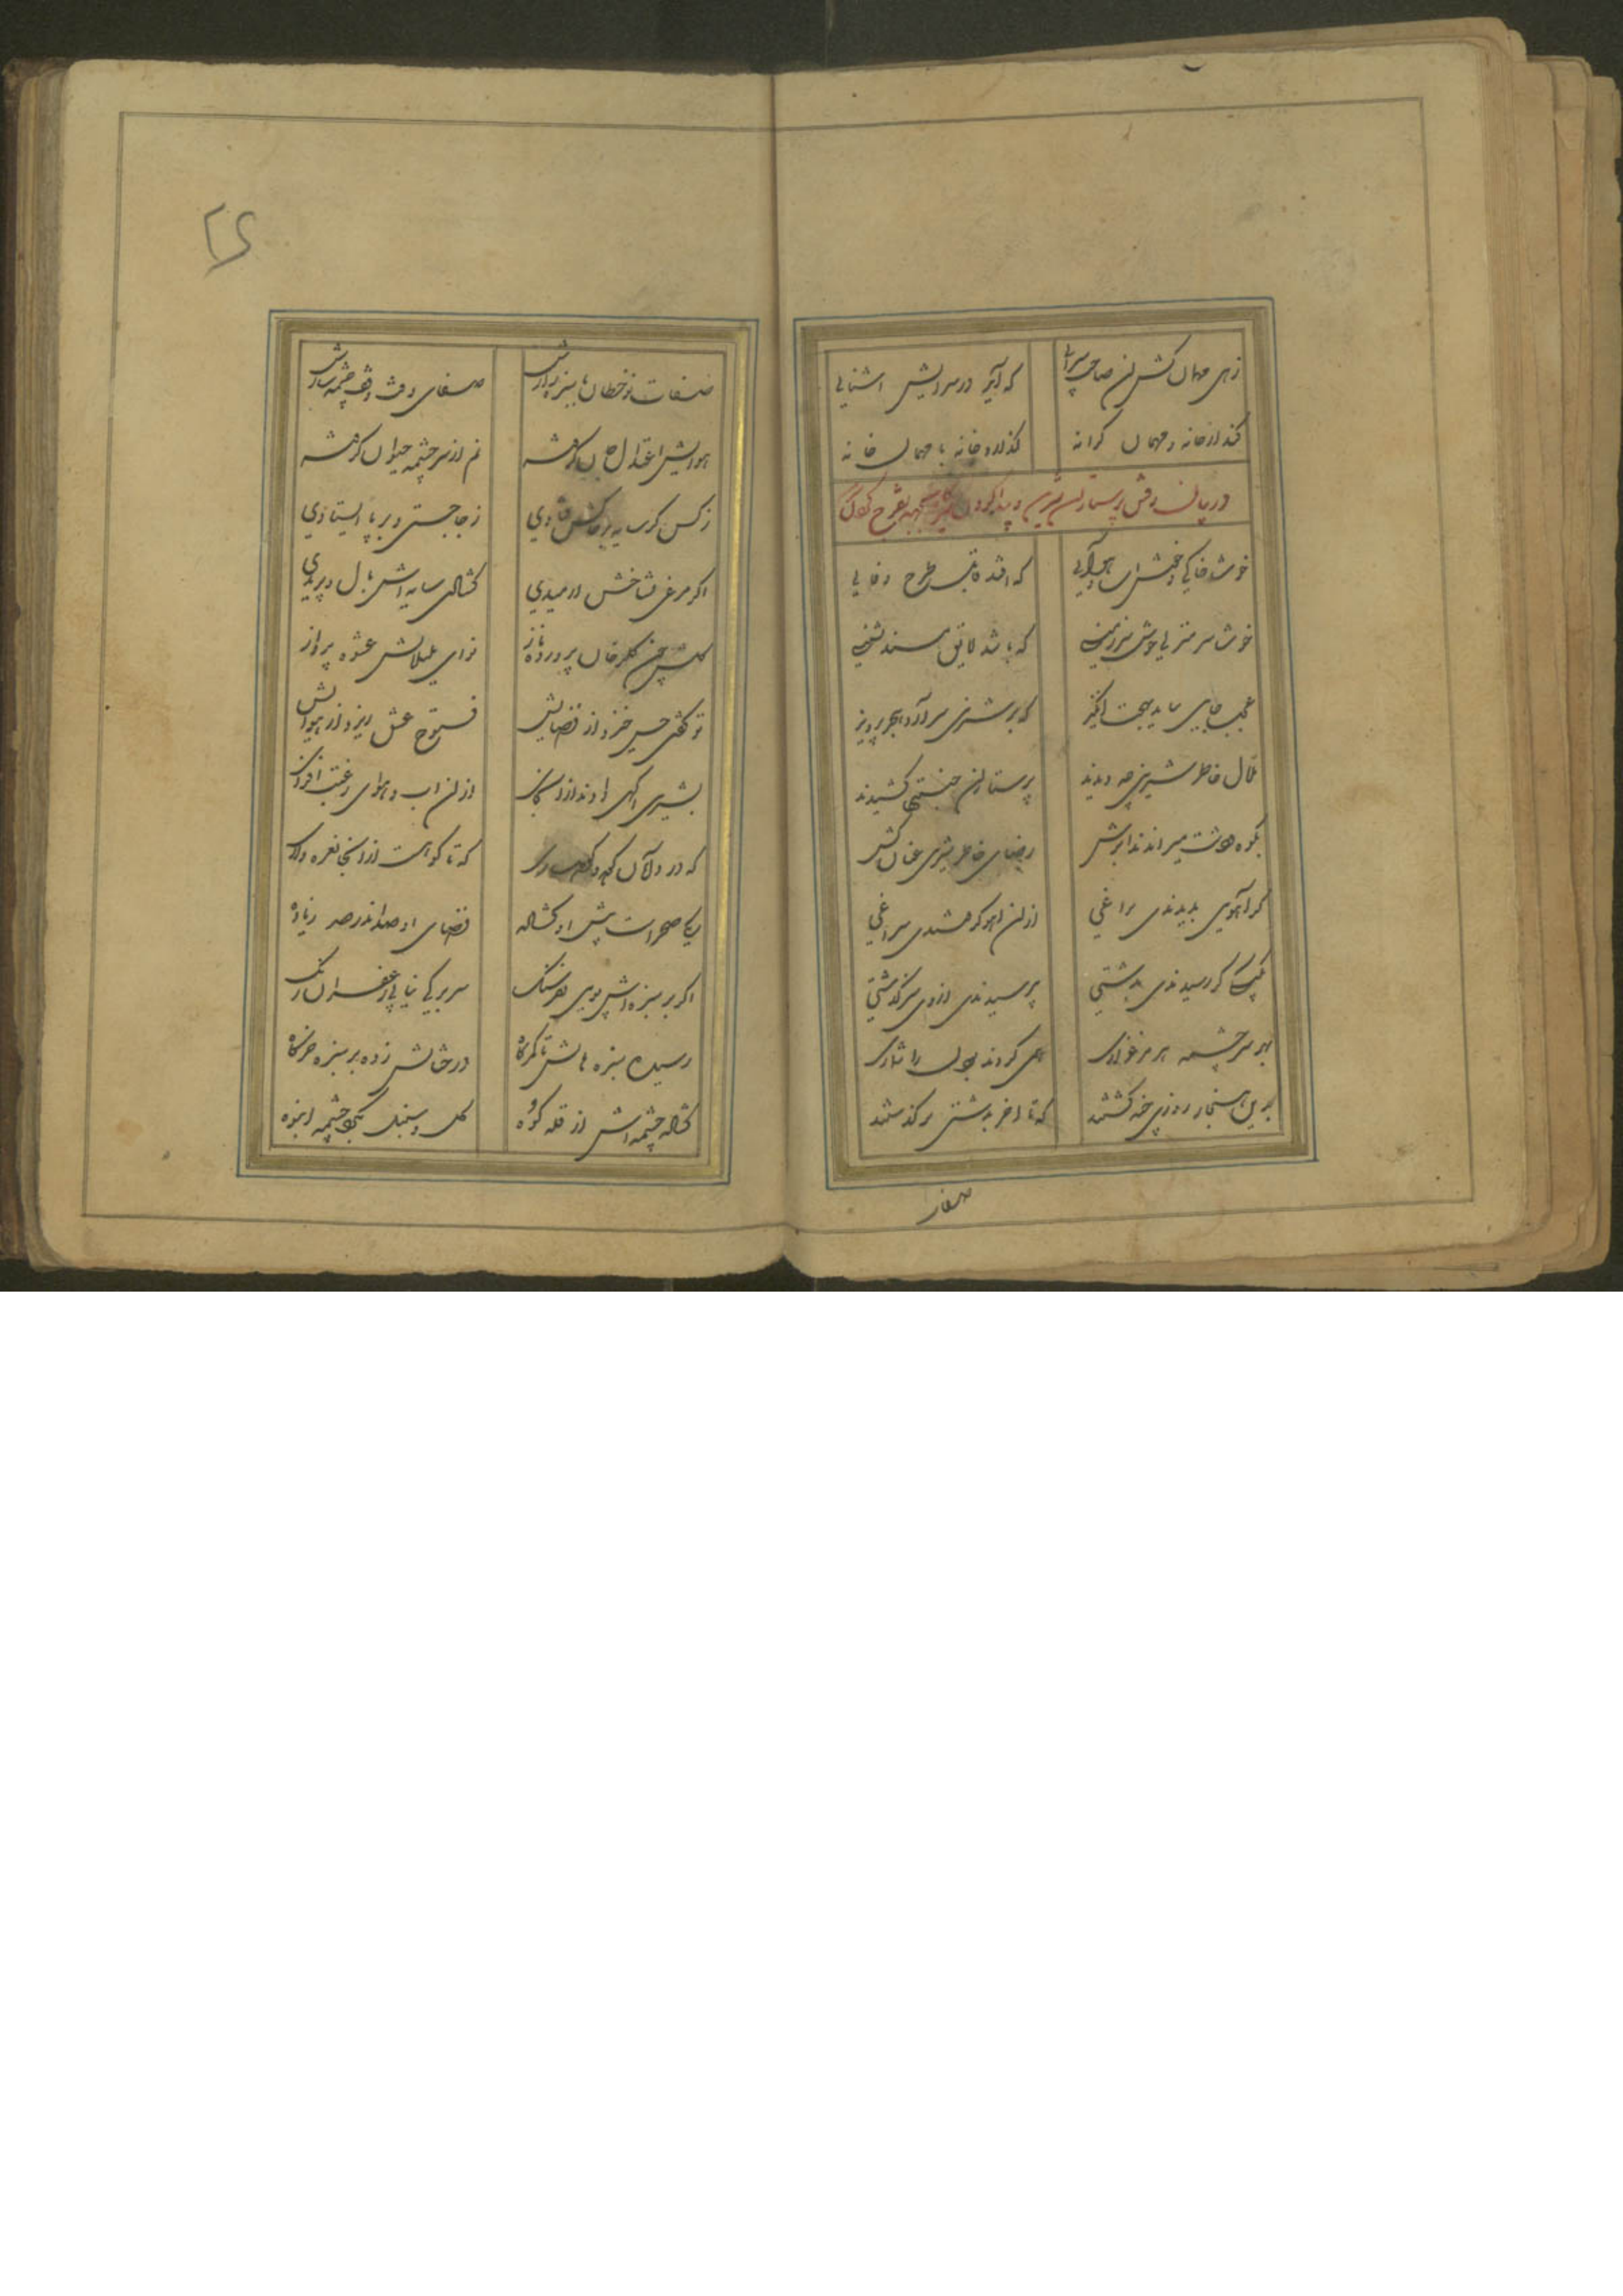 زهی مهمان کش آن صاحب سرایی که آید در سرایش اشنایی
کند از خانه و مهمان کرانه گذارد خانه با مهمان خانه
در بیان رفتن پرستاران شیرین و پیدا کردن جهه تفرج کردن
خوشا خاکی و خوش آب و هوایی که افتد قابل طرح وفایی
خوشا سر منزلی خوش سرزمینی که باشد لایق مسند نشینی
عجب جایی بباید بهجت انگیز که بر شیرین سر آرد هجر پرویز
ملال خاطر شیرین چو دیدند پرستاران جنیبتها کشیدند
بکوه و دشت میراندند ابرش رضای خاطر شیرین عنان کش
گر آهویی بدیدندی براغی از آن اهو گرفتندی سراغی
بکبکی گر رسیدندی بدشتی بپرسیدندی از وی سرگذشتی
بهر سرچشمه و هر مرغزاری همی کردند بودن را شماری
بدین هنجار روزی چند گشتند که تا اخر بدشتی برگذشتند
صفات نوخطان با سبزه زارش صفای وقت وقف چشمه سارش
هوایش اعتدال جان گرفته نم از سرچشمه حیوان گرفته
ز کس گر سایه بر خاکش فتادی ز جا جستی و بر پا ایستادی
اگر مرغی بشاخش آرمیدی گشادی سایه اش بال و پریدی
گلش چون گلرخان پرورده ناز نوای بلبلانش عشوه پرداز
تو گفتی حسن خیزد از فضایش فتوح عشق ریزد از هوایش
بشیرین اگهی دادند از آن جای از آن اب و هوای رغبت افزای
که در دامان کوه و کوهساری که تا کوه است از آنجا نعره واری
یکی صحراست پیش او گشاده فضای او صد اندر صد زیاده
اگر بر سبزه اش پویی بفرسنگ سر برگی نیابی زعفران رنگ
رسیده سبزه هایش تا کمرگاه درختانش زده بر سبزه خرگاه
گشاده چشمه اش از قله کوه گل و سنبل بگرد چشمه انبوه